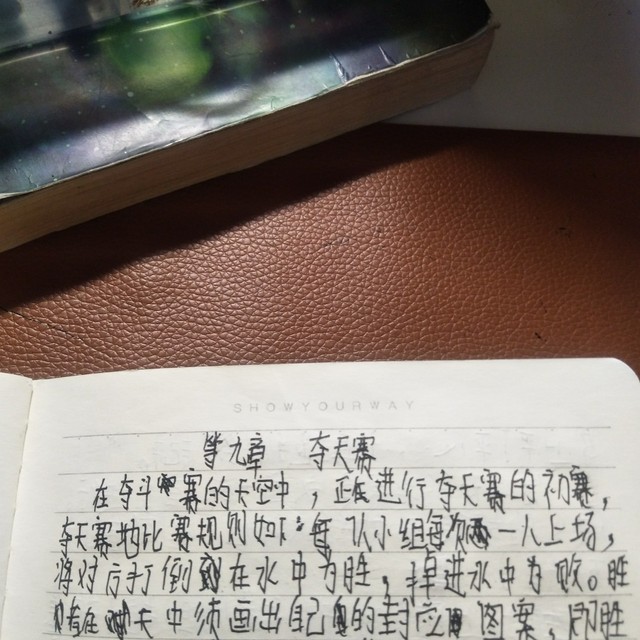 SHOWYOURWAY
第九章 夺天赛
在夺斗赛的天空中，正在进行夺天赛的初赛，
夺天赛地比赛规则如下：每队小组每次一人上场，
将对方打倒到在水中为胜，掉进水中为败。胜
者在天中须画出自己的封应图案，即胜